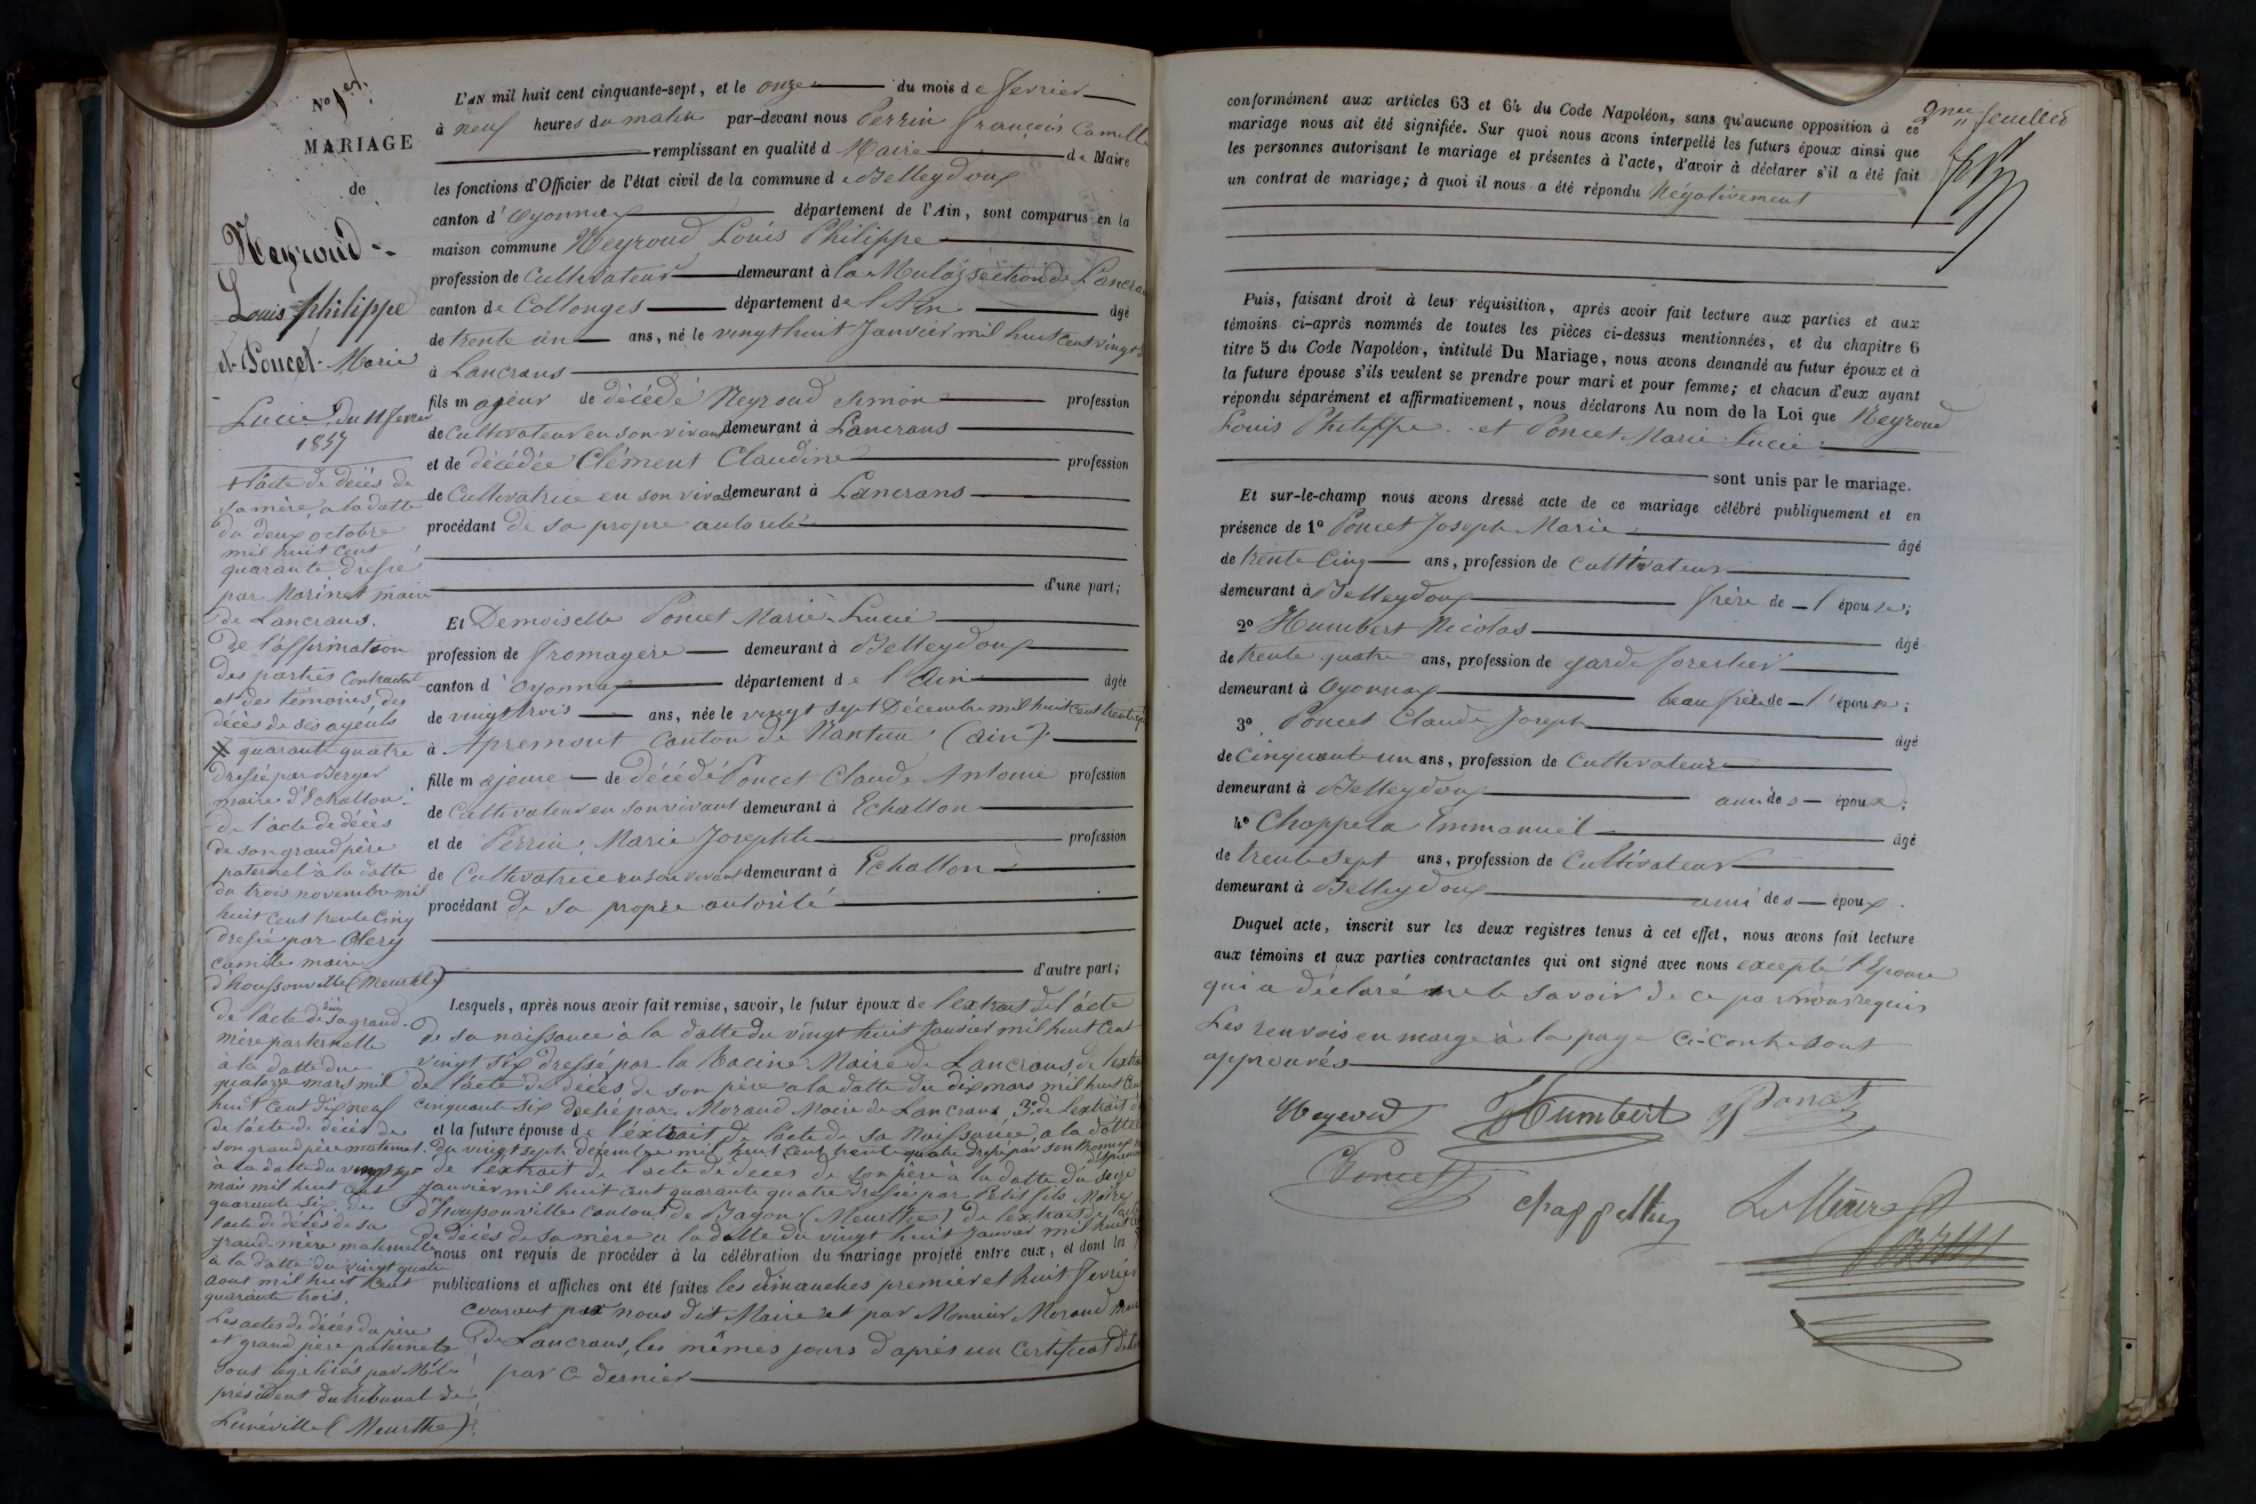 N° 1er.
MARIAGE
de
Neyroud
Louis philippe
et Poncet Marie
Lucie du 11 fevrier
1857
L'AN mil huit cent cinquante-sept, et le onze du mois de fevrier
à neuf heures du matin par-devant nous Perrin françois Camille
remplissant en qualité d Maire de Maire
les fonctions d'Officier de l'état civil de la commune de Belleydoux
canton d'Oyonnax département de l'Ain, sont comparus en la
maison commune Neyroud Louis Philippe
profession de Cultivateur demeurant à la Mulaz section de Lancrans
canton de Collonges département de l'Ain âgé
de trente un ans, né le vingt huit Janvier mil huit cent vingt
à Lancrans
fils majeur de décédé Neyroud Simon profession
de Cultivateur en son vivant demeurant à Lancrans
et de décédée Clément Claudine profession
de Cultivatrice en son vivant demeurant à Lancrans
procédant de sa propre autorité
d'une part;
Et Demoiselle Poncet Marie Lucie
profession de fromagere demeurant à Belleydoux
canton d'Oyonnax département de l'Ain âgée
de vingt trois ans, née le vingt sept Décembre mil huit cent trente
à Apremont Canton de Nantua (Ain)
fille majeure de décédé Poncet Claude Antoine profession
de Cultivateur en son vivant demeurant à Echallon
et de Perrin Marie Josephte profession
de Cultivatrice en son vivant demeurant à Echallon
procédant de sa propre autorité
d'autre part;
Lesquels, après nous avoir fait remise, savoir, le futur époux de l'extrait de l'acte
de sa naissance à la datte du vingt huit Janvier mil huit cent
vingt six dressé par la Racine Maire de Lancrans de l'extrait
de l'acte de décès de son père a la datte du dix mars mil huit cent
cinquante six dressé par Morand Maire de Lancrans 3° de l'extrait de
et la future épouse de l'extrait de l'acte de sa Naissance a la datte
du vingt sept décembre mil huit cent trente quatre dressé par
de l'extrait de l'acte de deces de son père à la datte du seize
janvier mil huit cent quarante quatre dressé par Petit fils Maire
d'houssonville Canton de Bayon (Meurthe) de l'extrait de l'acte
de décès de sa mère a la datte du vingt huit Janvier mil huit cent
nous ont requis de procéder à la célébration du mariage projeté entre eux, et dont les
publications et affiches ont été faites les dimanches premier et huit fevrier
courant par nous dit Maire et par Monsieur Morand Maire
de Lancrans, les mêmes jours d'après un Certificat
par ce dernier
l'acte de décès de
sa mère, a la datte
du deux octobre
mil huit cent
quarante dressé
par Marinet maire
de Lancrans.
De l'affirmation
des parties Contractantes
et des témoins, des
décès de ses ayeuls
quarante quatre
dressé par Berger
maire d'Echallon.
de l'acte de décès
de son grand père
paternel à la datte
du trois novembre mil
huit cent trente cinq
dressé par Olery
camille maire
d'houssonville (Meurthe)
de l'acte de décès sa grand
mère paternelle
à la datte du
quatorze mars mil
huit cent dix neuf
de l'acte de décès de
son grand père maternel
à la datte du
mai mil huit cent
quarante six. de
l'acte de décès de sa
grand mère maternelle
à la datte du vingt quatre
aout mil huit cent
quarante trois.
Les actes de décès du père
et grand père paternels
sont légalisés par M. le
président du tribunal de
Lunéville (Meurthe)
2me feuillet
conformément aux articles 63 et 64 du Code Napoléon, sans qu'aucune opposition à ce
mariage nous ait été signifiée. Sur quoi nous avons interpellé les futurs époux ainsi que
les personnes autorisant le mariage et présentes à l'acte, d'avoir à déclarer s'il a été fait
un contrat de mariage; à quoi il nous a été répondu Négativement
Puis, faisant droit à leur réquisition, après avoir fait lecture aux parties et aux
témoins ci-après nommés de toutes les pièces ci-dessus mentionnées, et du chapitre 6
titre 5 du Code Napoléon, intitulé Du Mariage, nous avons demandé au futur époux et à
la future épouse s'ils veulent se prendre pour mari et pour femme; et chacun d'eux ayant
répondu séparément et affirmativement, nous déclarons Au nom de la Loi que Neyroud
Louis Philippe et Poncet Marie Lucie
sont unis par le mariage.
Et sur-le-champ nous avons dressé acte de ce mariage célébré publiquement et en
présence de 1° Poncet Joseph Marie âgé
de trente Cinq ans, profession de Cultivateur
demeurant à Belleydoux frère de l'épouse;
2° Humbert Nicolas âgé
de trente quatre ans, profession de garde forestier
demeurant à Oyonnax beau frère de l'épouse;
3° Poncet Claude Joseph âgé
de Cinquante un ans, profession de Cultivateur
demeurant à Belleydoux ami des époux;
4° Chappela Emmanuel âgé
de trente sept ans, profession de Cultivateur
demeurant à Belleydoux ami des époux.
Duquel acte, inscrit sur les deux registres tenus à cet effet, nous avons fait lecture
aux témoins et aux parties contractantes qui ont signé avec nous excepté l'Epouse
qui a déclaré ne le savoir de ce par nous requis
Les renvois en marge à la page Ci-Contre sont
approuvés
Neyroud Humbert Poncet
Poncet
Chappelluz Le Maire
Perrin